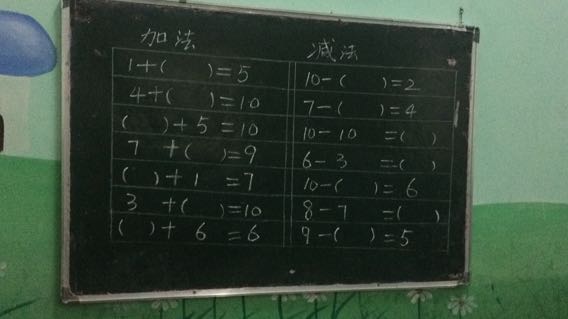 加法
1+( )=5
4+( )=10
( )+5=10
7+( )=9
( )+1=7
3+( )=10
( )+6=6
减法
10-( )=2
7-( )=4
10-10=( )
6-3=( )
10-( )=6
8-7=( )
9-( )=5